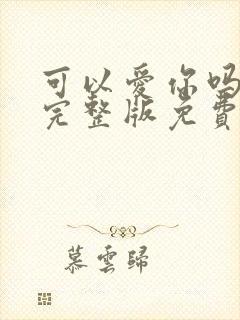 可以愛你吗
完整版免費
慕雲歸